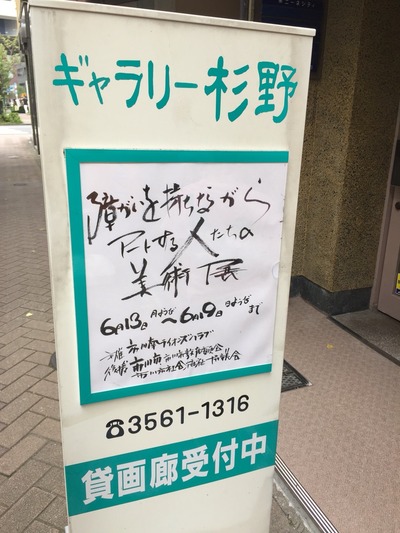 ギャラリー杉野
障がいを持ちながら
アートする人たちの
美術展
6月13日月ようび〜6月19日日ようびまで
主催 市川南ライオンズクラブ
後援 市川市 市川市教育委員会
市川市社会福祉協議会
☎3561-1316
貸画廊受付中